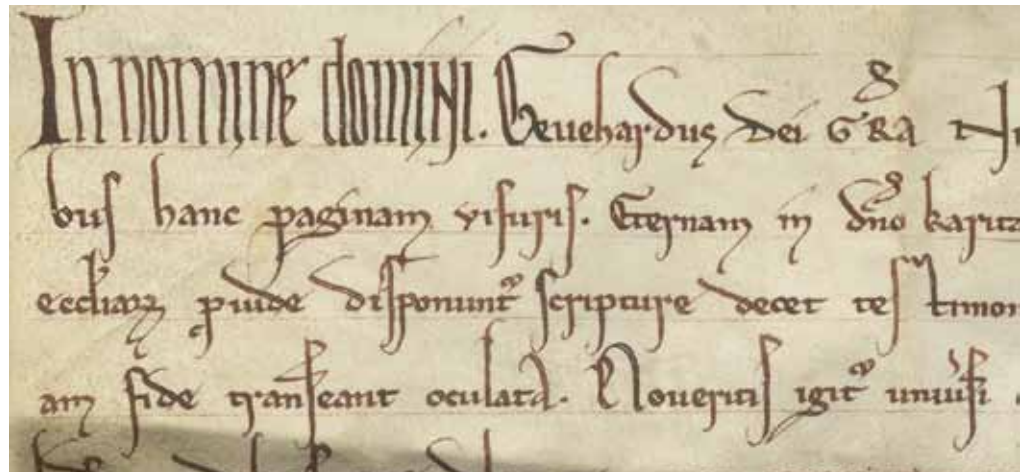 In nomine domini. Gevehardus dei gra
bus hanc paginam visuris. Eternam in dno karita
eccliarꝝ ꝓvide disponunt᷑ scripture decet testimon
am fide transeant oculata. Noveritis igit᷑ univ̾si